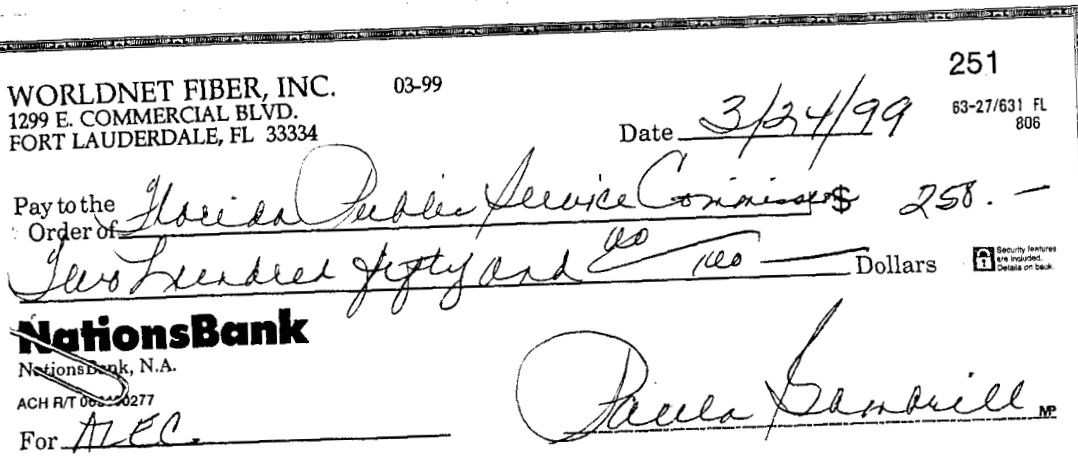 251
WORLDNET FIBER, INC. 03-99
1299 E. COMMERCIAL BLVD.
FORT LAUDERDALE, FL 33334
63-27/631 FL
806
Date 3/24/99
Pay to the
Order of Florida Public Service Commission $ 250. —
Two Hundred fifty and 00/100 — Dollars
Security features
are included.
Details on back.
NationsBank
NationsBank, N.A.
ACH R/T 0277
For ALEC.
Paula MP